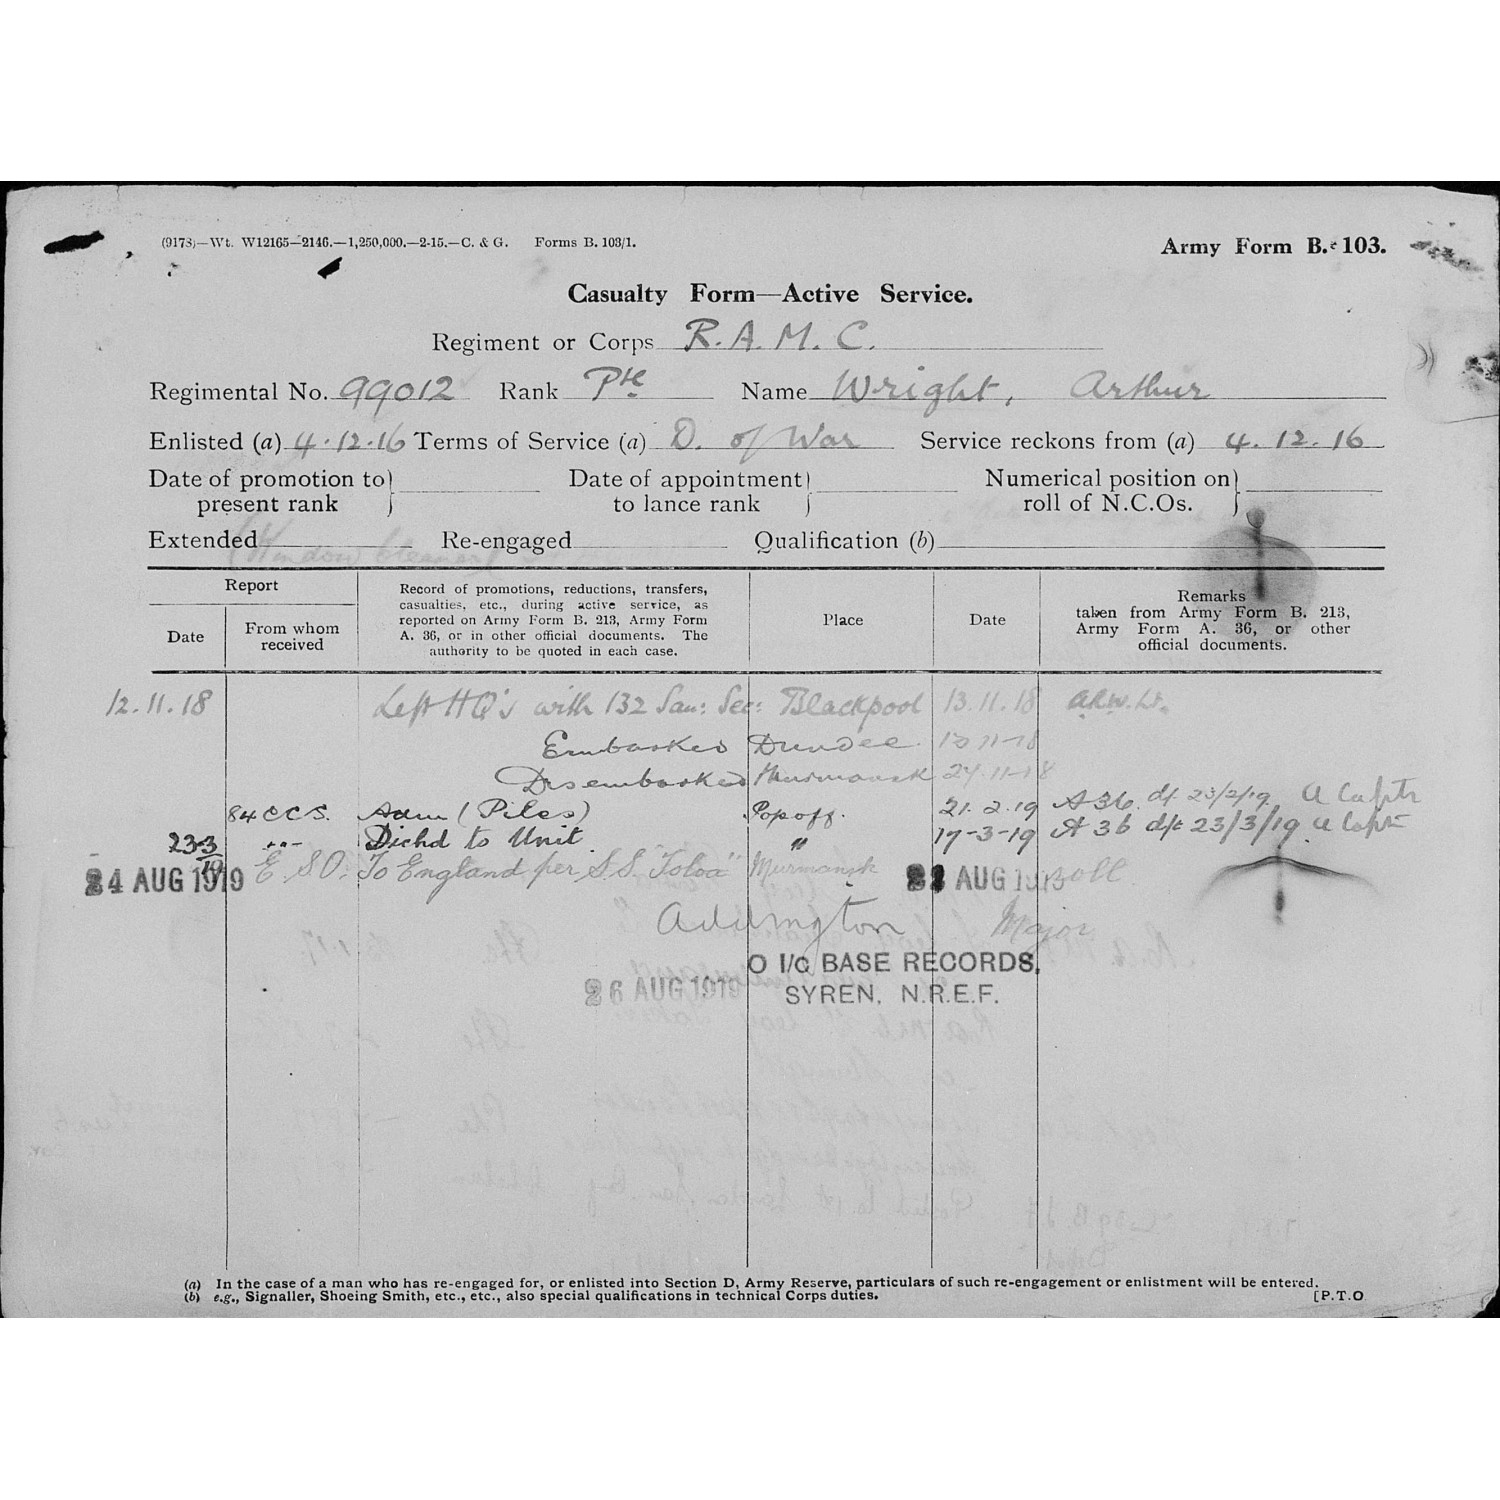 (9178)—Wt. W12165—2146.—1,250,000.—2-15.—C. & G. Forms B. 103/1.
Army Form B. 103.
Casualty Form—Active Service.
Regiment or Corps R. A. M. C.
Regimental No. 99012 Rank Pte Name Wright, Arthur
Enlisted (a) 4.12.16 Terms of Service (a) D. of War Service reckons from (a) 4.12.16
Date of promotion to present rank Date of appointment to lance rank Numerical position on roll of N.C.Os.
Extended Re-engaged Qualification (b)
(Window Cleaner)
Report
Date
From whom received
Record of promotions, reductions, transfers, casualties, etc., during active service, as reported on Army Form B. 213, Army Form A. 36, or in other official documents. The authority to be quoted in each case.
Place
Date
Remarks taken from Army Form B. 213, Army Form A. 36, or other official documents.
12.11.18 Left HQ's with 132 San: Sec: Blackpool 13.11.18
Embarked Dundee
Disembarked Murmansk
84 CCS. Adm (Piles) Popoff. 21.2.19 A 36 df 23/2/19 A Capt
23-3/19 " " Dichd to Unit " 17-3-19 A 36 df 23/3/19 A Capt
24 AUG 1919 E.S.O. To England per S.S. "Toloa" Murmansk AUG 1919 roll
Addington Major
O I/C BASE RECORDS,
26 AUG 1919 SYREN, N.R.E.F.
(a) In the case of a man who has re-engaged for, or enlisted into Section D, Army Reserve, particulars of such re-engagement or enlistment will be entered.
(b) e.g., Signaller, Shoeing Smith, etc., etc., also special qualifications in technical Corps duties. [P.T.O